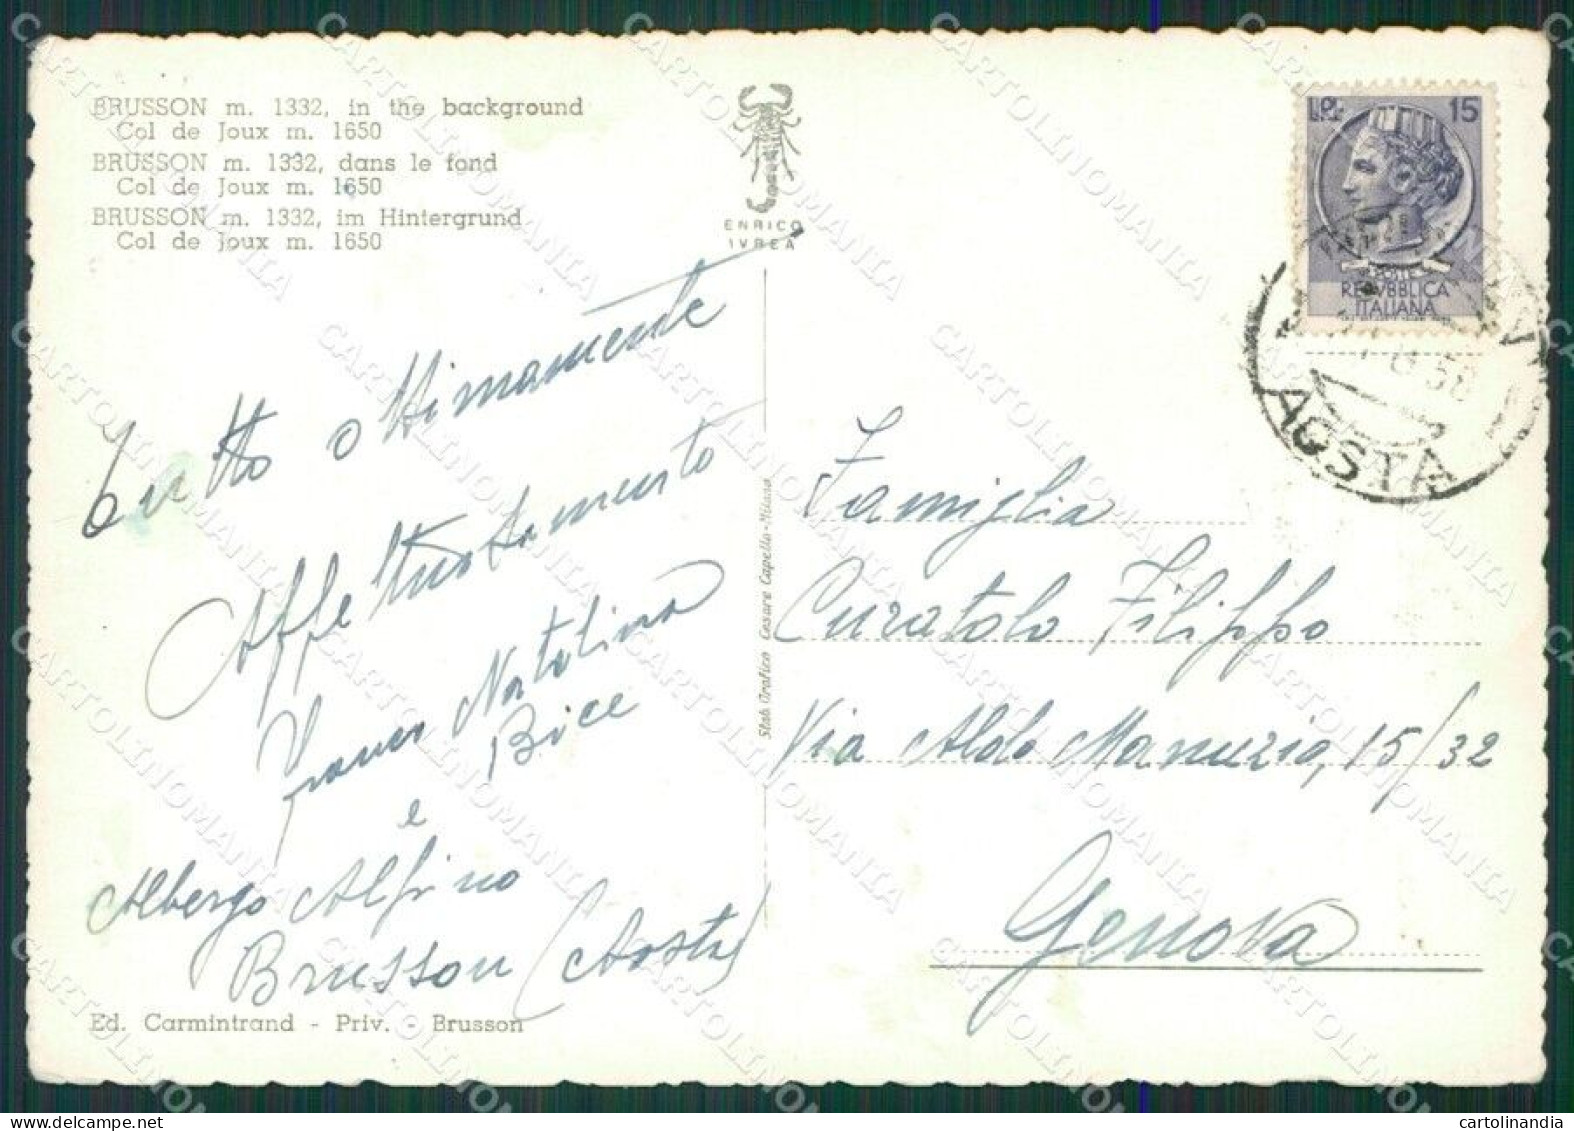 BRUSSON m. 1332, in the background
Col de Joux m. 1650
BRUSSON m. 1332, dans le fond
Col de Joux m. 1650
BRUSSON m. 1332, im Hintergrund
Col de Joux m. 1650
ENRICO
IVREA
LIRE 15
POSTE
REPVBBLICA
ITALIANA
AOSTA
tutto ottimamente
Affettuosamente
Natalina
Bice
e
Albergo Alpino
Brusson (Aosta)
Ed. Carmintrand - Priv. - Brusson
Stab. Grafico Cesare Capello-Milano
Famiglia
Curatolo Filippo
Via Aldo Manuzio, 15/32
Genova
CARTOLINOMANIA
cartolinandia